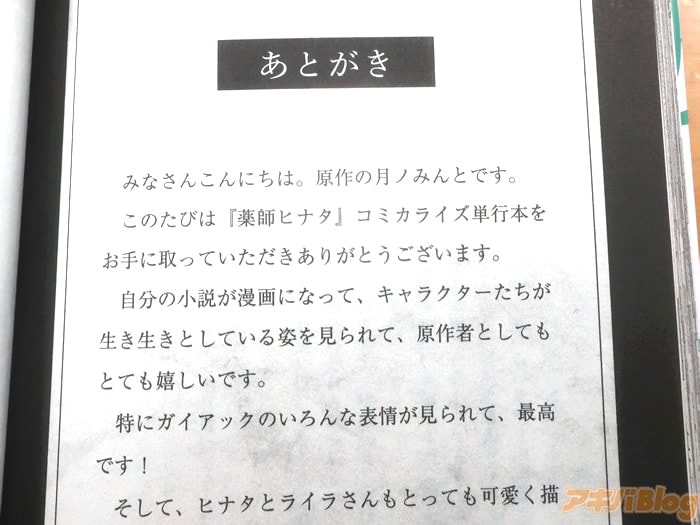 あとがき
みなさんこんにちは。原作の月ノみんとです。
このたびは『薬師ヒナタ』コミカライズ単行本を
お手に取っていただきありがとうございます。
自分の小説が漫画になって、キャラクターたちが
生き生きとしている姿を見られて、原作者としても
とても嬉しいです。
特にガイアックのいろんな表情が見られて、最高
です！
そして、ヒナタとライラさんもとっても可愛く描
アキバBlog